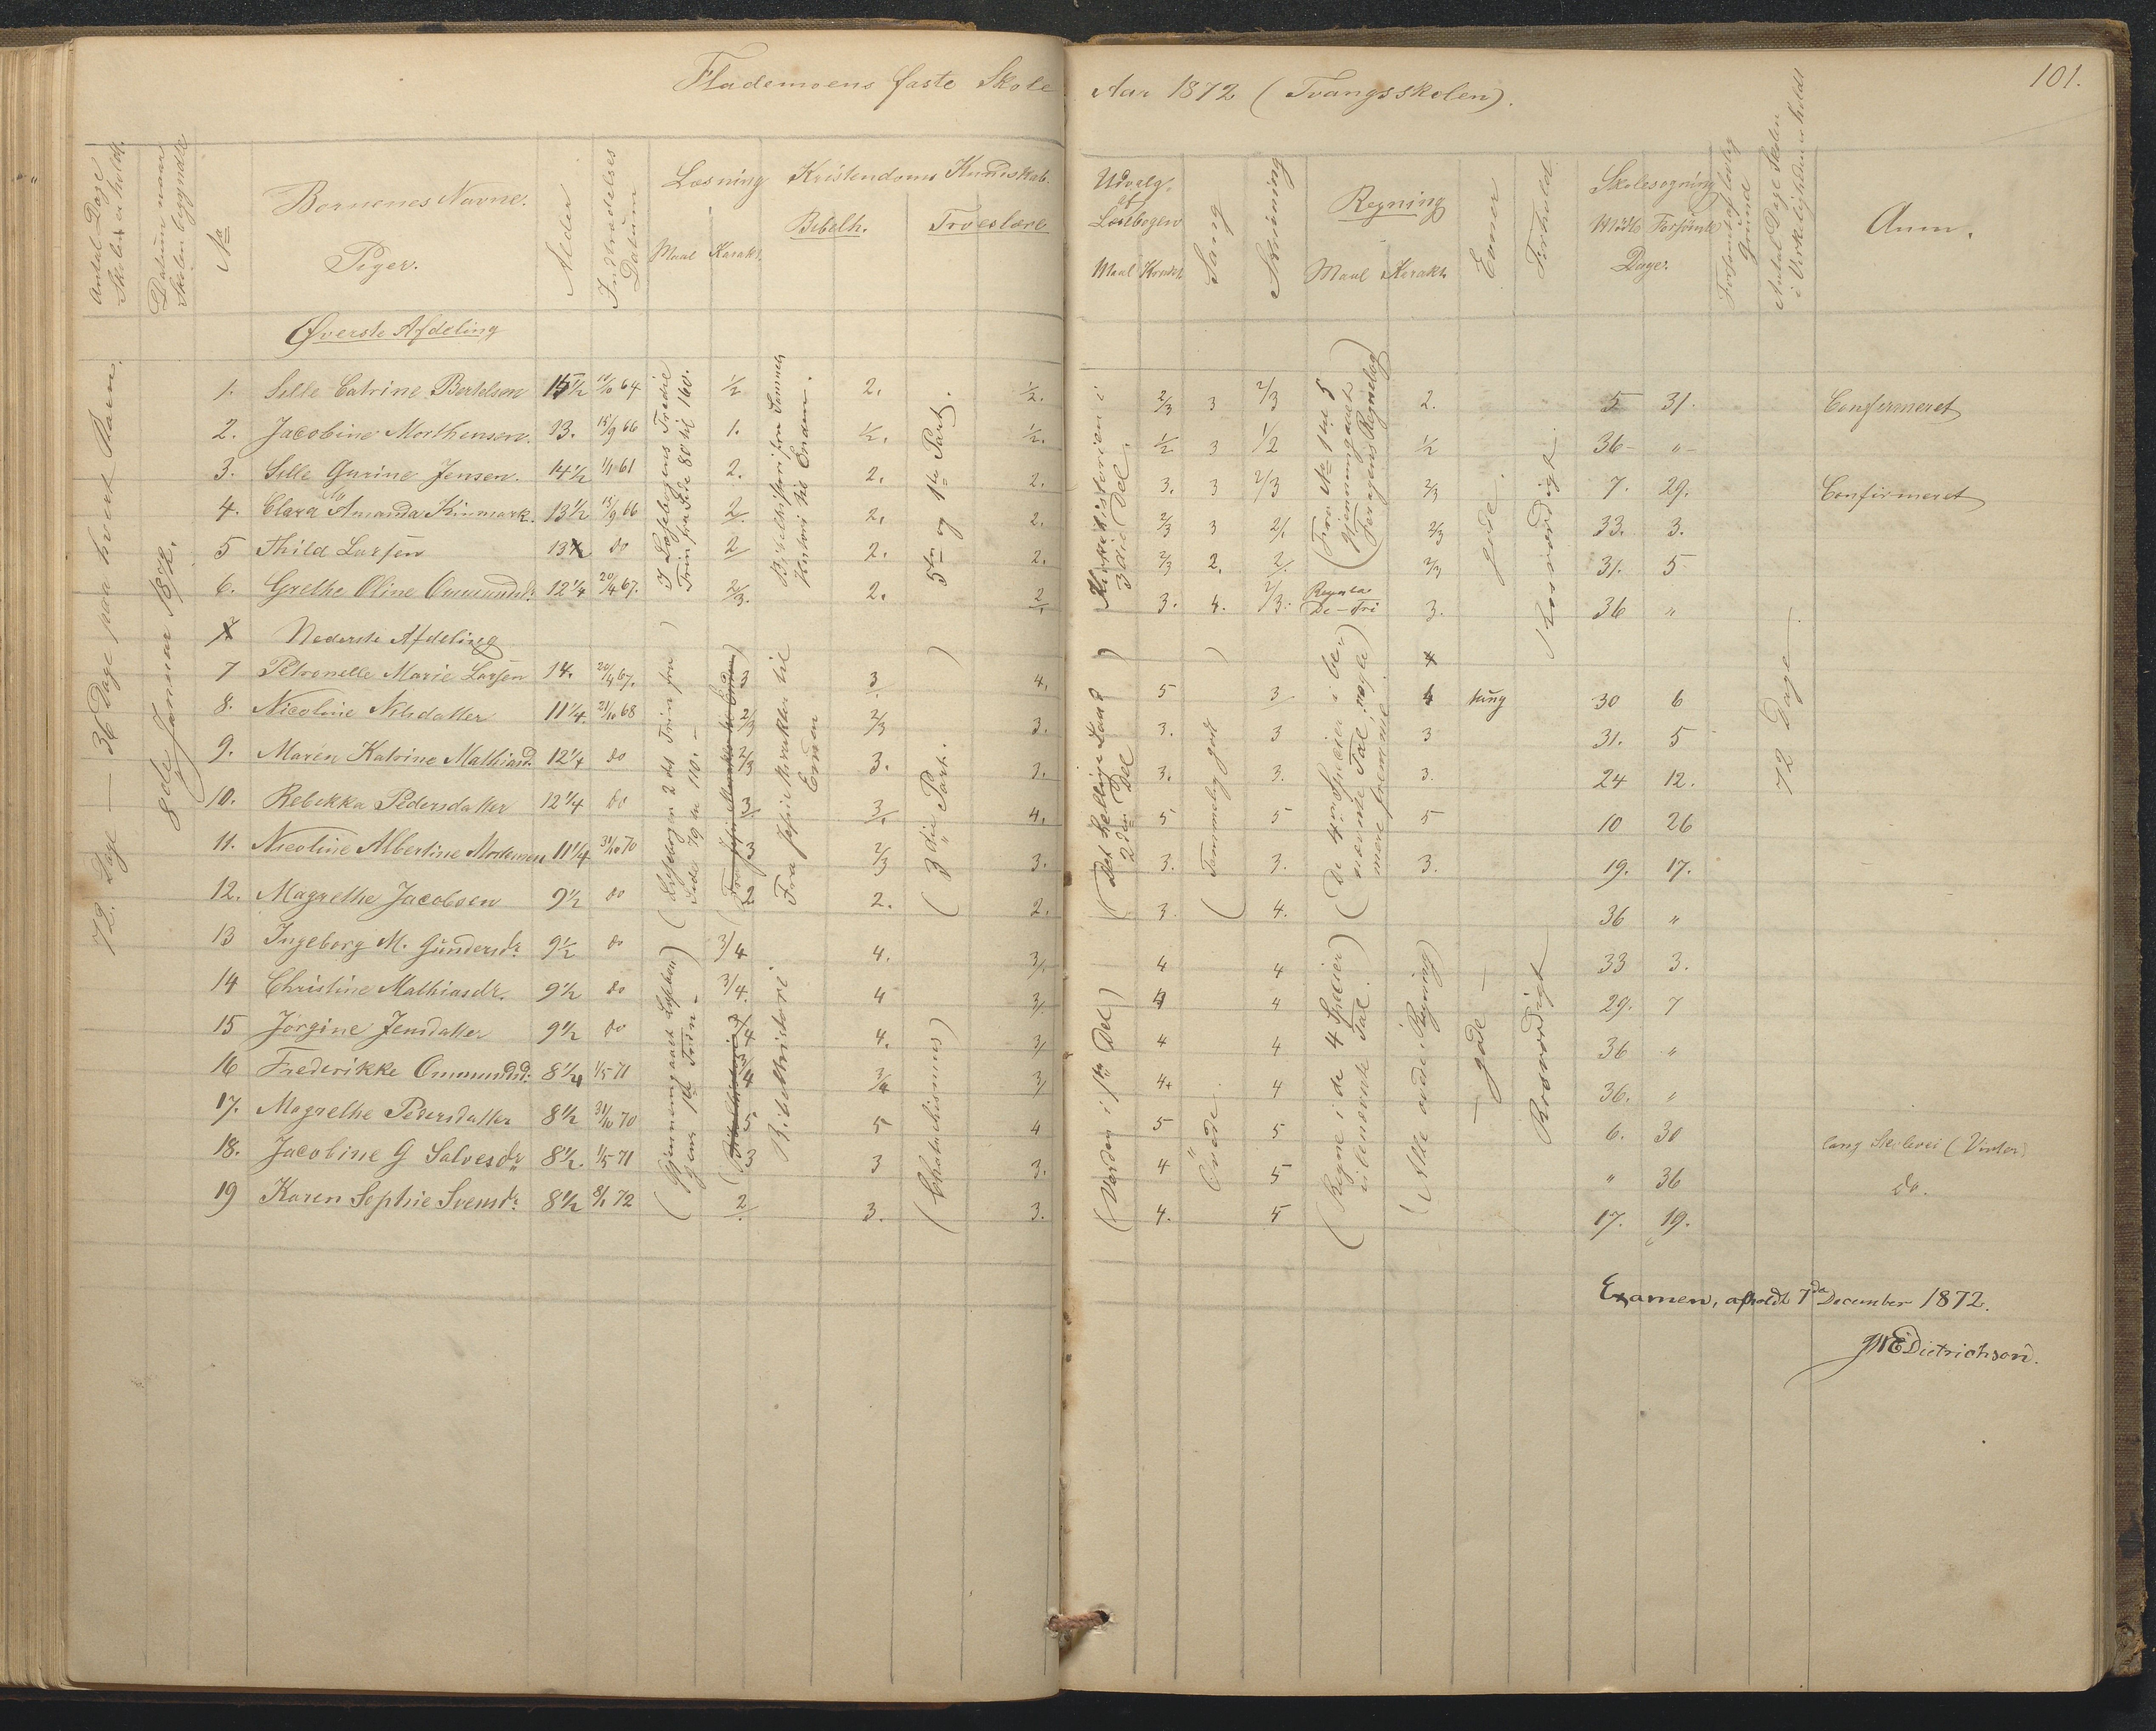 Flademoens faste Skole Aar 1872 (Tvangsskolen). 101.
Antal Dage Skolen er holdt.
Datum naar Skolen begyndte
No
Børnenes Navne. Piger.
Alder
Indtrædelses Datum
Læsning Maal Karakt.
Kristendoms Kundskab.
Bibelh. Troeslære
Udvalg af Læsebogen Maal Karakt
Sang
Skrivning
Regning Maal Karakt.
Evner
Forhold
Skolesøgning Mødte Forsømte Dage.
Forsømt af lovlig Grund
Antal Dage Skolen i Virkeligheden er holdt
Anm.
72 Dage — 36 Dage paa hvert Rum.
8de Januar 1872.
Øverste Afdeling
1. Sille Catrine Bertelsen 15 1/2 64 1/2 2. 1/2. 2/3 3 2/3 2. 5 31. Confirmeret
2. Jacobine Morthensen. 13. 15/9 66 1. 1/2. 1/2. 1/2 3 1/2 1/2 36 - " -
3. Sille Gurine Jensen. 14 1/2 1/1 61 2. 2. 2. 3. 3 2/3 2/3 7. 29. Confirmeret
4. Clara Amanda Kinmark. 13 1/2 15/9 66 2. 2. 2. 2/3 3 2/. 2/3 33. 3.
5 Thild Larsen 13 do 2 2. 2. 2/3 2. 2/. 2/3 31. 5
6. Grethe Oline Ommundsd. 12 1/4 20/4 67. 2/3. 2. 2. 3. 4. 2/3. 3. 36 "
I Læsebogens Tredie Trin fra Side 80 til 160.
Bibelhistori fra Samuels Histori til Enden.
5te og 1ste Part.
Kirkehistorien i 3die Del.
(Fra No 1 til 5 Gjennemgaaet Forriges Regnebog)
Regula De-Tri
gode.
Roesværdigt.
Nederste Afdeling
7 Petronelle Marie Larsen 14. 20/4 67. 3 3 4. 5 3 4 tung 30 6
8. Nicoline Nilsdatter 11 1/4. 21/10 68 2/3 2/3 3. 3. 3 3 31. 5
9. Maren Katrine Mathiasd. 12 1/4 do 2/3 3. 3. 3. 3. 3. 24 12.
10. Rebekka Pedersdatter 12 1/4 do 3 3. 4. 5. 5 5 10 26
11. Nicoline Albertine Mortensen 11 1/4 31/10 70 3 2/3 3. 3. 3. 3. 19. 17.
12. Magrethe Jacobsen 9 1/2 do 2 2. 2. 3. 4. 36 "
13 Ingeborg M. Gundersdr. 9 1/2 do 3/4 4. 3/. 4 4 33 3.
14 Christine Mathiasdr. 9 1/2 do 3/4. 4 3/. 4 4 29. 7
15 Jørgine Jensdatter 9 1/2 do 3/4 4. 3/. 4 4 36 "
16 Frederikke Ommundsd. 8 1/4 1/5 71 3/4 3/4 3/. 4. 4 36. "
17. Magrethe Pedersdatter 8 1/2 31/10 70 5 5 4 5 5 6. 30 lang Skolevei (Vinter)
18. Jacobine G Salvesdr. 8 1/2. 1/5 71 3 3 3. 4 5 " 36 do.
19 Karen Sophie Svensdr. 8 1/2 8/1 72 2. 3. 3. 4. 5 17. 19.
(Læsebogen 2det Trin fra Side 79 til 110. -
(Gjennemgaaet Læsebogens 1ste Trin -
Fra Josvie Mirakler til Enden
Bibelhistori
(3die Part.)
(Chatechismus)
(Det hellige Land 2den Del)
(Verden i 1ste Del)
(Temmelig godt)
Øvede
(De 4re Specier i benævnte Tal, nogle mere fremmane)
(Regne i de 4 Specier i ubenævnte Tal.)
(Alle øvede i Regning)
— gode —
Roesværdigt
72 Dage.
Examen, afholdt 7de December 1872.
JME Dietrichson.